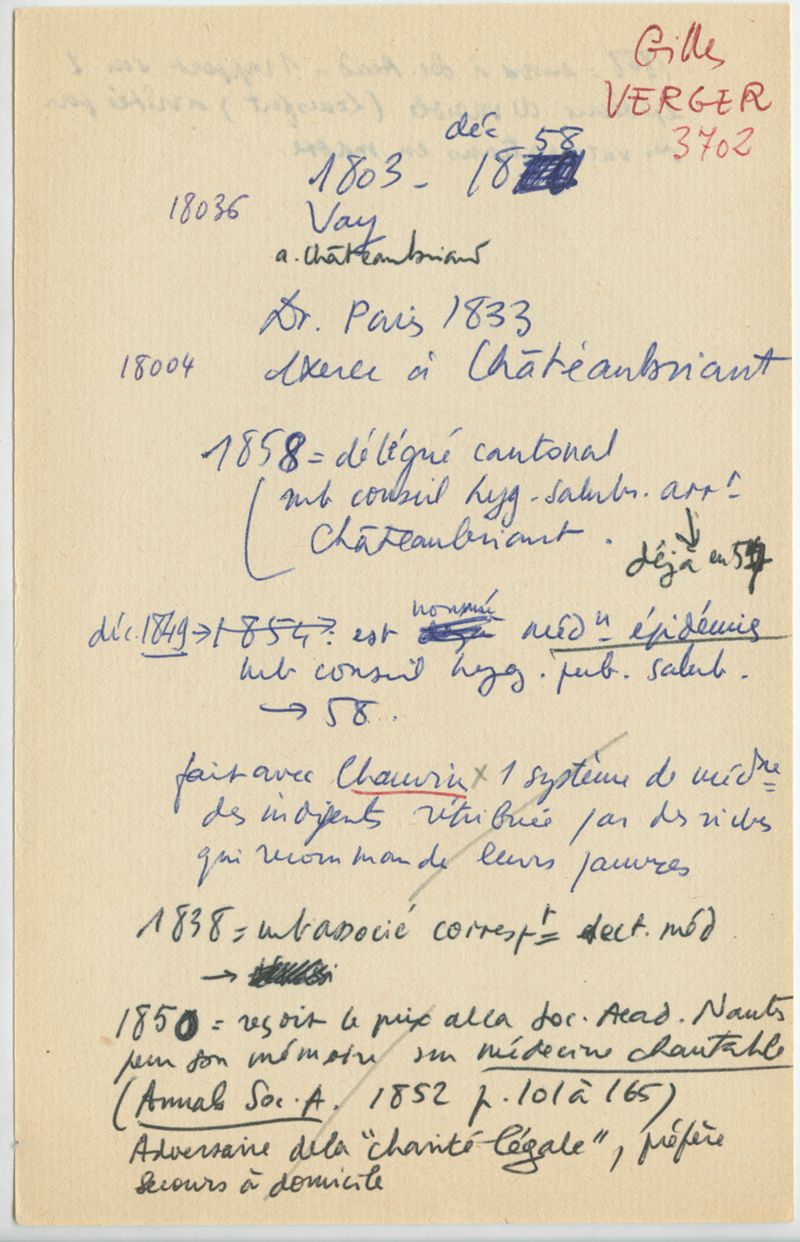 Gilles
VERGER
3702
déc 58
1803 - 18
18036
Vay
a. Châteaubriand
Dr. Paris 1833
18004 exerce à Châteaubriant
1858 = délégué cantonal
mb conseil hyg. salubr. arrt
Châteaubriant.
déjà en 57
déc. 1849 → 1854 : est nommé médn épidémies
mb conseil hyg. pub. salub.
→ 58.
fait avec Chauvin x 1 système de médne
des indigents rétribuée par des riches
qui recommande leurs pauvres
1838 = mb associé correspt sect. méd
→
1850 = reçoit le prix de la Soc. Acad. Nantes
pour son mémoire sur médecine charitable
(Annals Soc. A. 1852 p. 101 à 165)
Adversaire de la "charité légale", préfère
secours à domicile